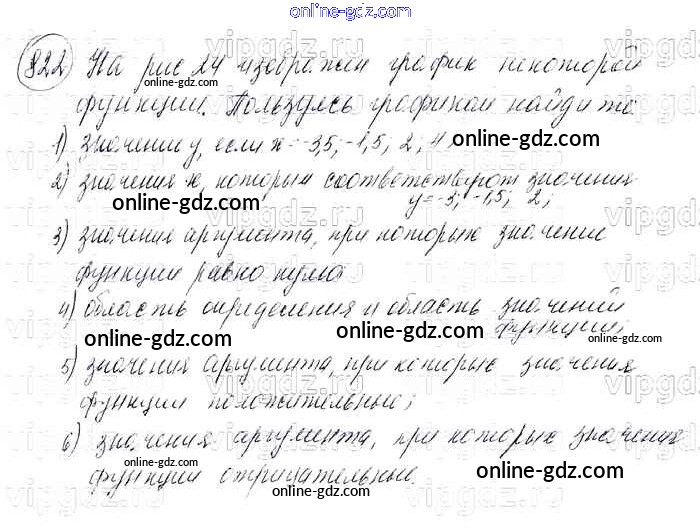 online-gdz.com
822 На рис 24 изображен график некоторой
функции. Пользуясь графиком найдите
1) значение y, если x = -3,5; -1,5; 2; 4
online-gdz.com
2) значения x, которым соответствуют значения
online-gdz.com y = -3; -1,5; 2;
3) значения аргумента, при которых значение
функции равно нулю
online-gdz.com
4) область определения и область значений
online-gdz.com online-gdz.com функции;
5) значения аргумента, при которых значения
функции положительные;
online-gdz.com
6) значения аргумента, при которых значения
online-gdz.com online-gdz.com
функции отрицательные.
online-gdz.com